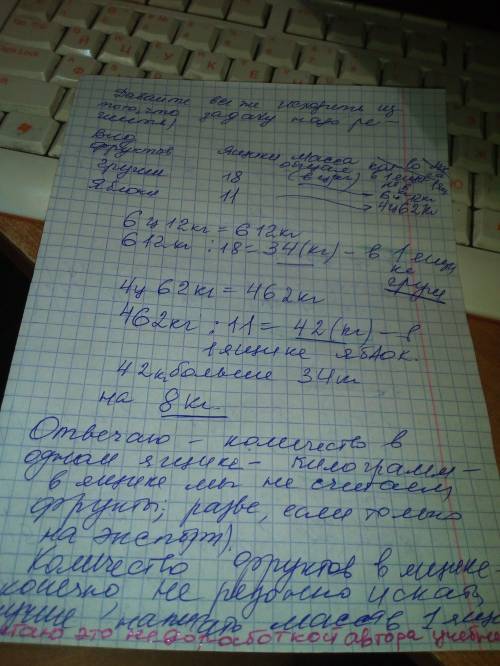 Давайте все же исходить из
того, что задачу надо ре-
шить)
Вид
фруктов ящики масса
общая
(в кг) кол-во
в 1 ящ
груши 18 6ц 12кг
яблоки 11 4ц 62кг
6ц 12кг = 612кг
612кг : 18 = 34(кг) - в 1 ящи
ке
груш
4ц 62кг = 462кг
462кг : 11 = 42(кг) - в
1 ящике яблок.
42кг больше 34кг
на 8кг.
Отвечаю - количество в
одном ящике - килограмм -
в ящике мы не считаем
фрукты; разве, если только
на экспорт).
Количество фруктов в ящике -
конечно не резонно искать,
лучше написать масса в 1 ящ
это недоработкой автора учебни